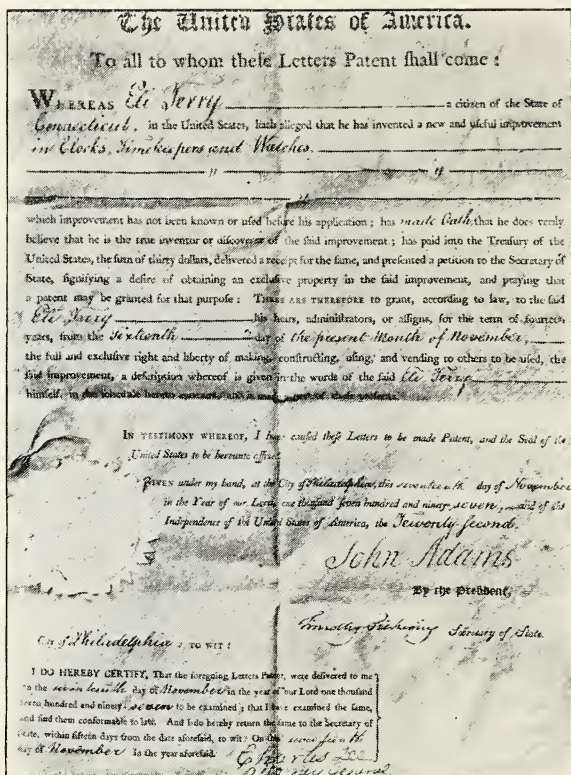 The United States of America.
To all to whom theſe Letters Patent ſhall come:
WHEREAS Eli Terry a citizen of the State of
Connecticut, in the United States, hath alleged that he has invented a new and uſeful improvement
in Clocks, Timekeepers and Watches.
which improvement has not been known or uſed before his application; has made Oath, that he does verily
believe that he is the true inventor or diſcoverer of the ſaid improvement; has paid into the Treaſury of the
United States, the ſum of thirty dollars, delivered a receipt for the ſame, and preſented a petition to the Secretary of
State, ſignifying a deſire of obtaining an excluſive property in the ſaid improvement, and praying that
a patent may be granted for that purpoſe: THESE ARE THEREFORE to grant, according to law, to the ſaid
Eli Terry his heirs, adminiſtrators, or aſſigns, for the term of fourteen
years, from the Sixteenth day of the present Month of November,
the full and excluſive right and liberty of making, conſtructing, uſing, and vending to others to be uſed, the
ſaid improvement, a deſcription whereof is given in the words of the ſaid Eli Terry
himſelf, in the ſchedule hereto annexed, and is made a part of theſe preſents.
IN TESTIMONY WHEREOF, I have cauſed theſe Letters to be made Patent, and the Seal of the
United States to be hereunto affixed.
GIVEN under my hand, at the City of Philadelphia, this seventeenth day of November
in the Year of our Lord, one thouſand ſeven hundred and ninety seven, and of the
Independence of the United States of America, the Twenty Second.
John Adams
By the Preſident,
Timothy Pickering Secretary of State.
City of Philadelphia, TO WIT:
I DO HEREBY CERTIFY, That the foregoing Letters Patent, were delivered to me
on the seventeenth day of November in the year of our Lord one thouſand
ſeven hundred and ninety seven to be examined; that I have examined the ſame,
and find them conformable to law. And I do hereby return the ſame to the Secretary of
State, within fifteen days from the date aforeſaid, to wit: On this seventeenth
day of November in the year aforeſaid.
Charles Lee
Attorney General